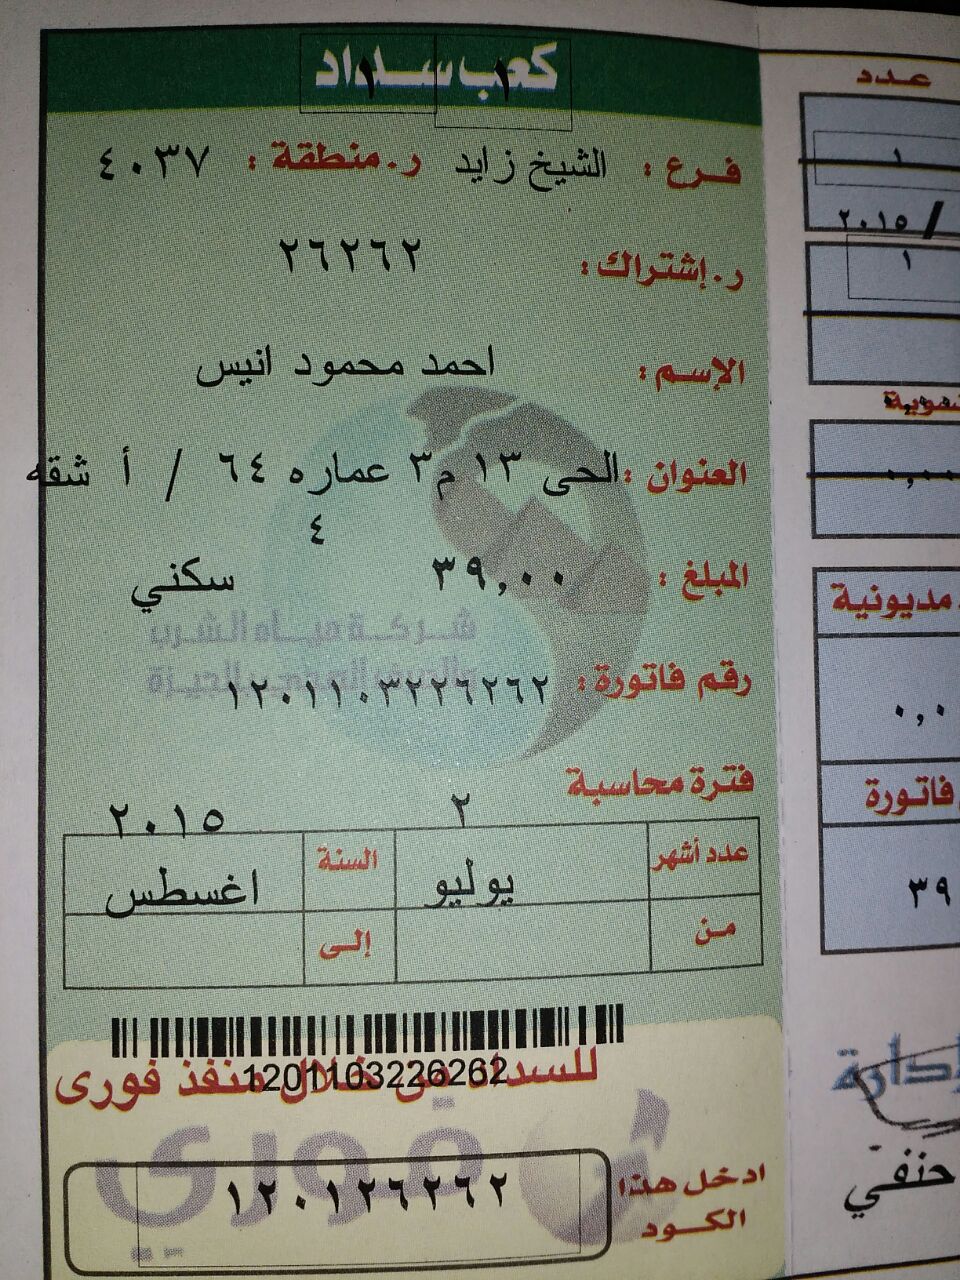 كعب سداد
١ ١
فرع : الشيخ زايد ر.منطقة : ٤٠٣٧
ر.إشتراك : ٢٦٢٦٢
الإسم : احمد محمود انيس
العنوان : الحى ١٣ م٣ عماره ٦٤ / أ شقه
٤
المبلغ : ٣٩,٠٠ سكني
شركة مياه الشرب
والصرف الصحي بالجيزة
رقم فاتورة : ١٢٠١١٠٣٢٢٦٢٦٢
فترة محاسبة
٢ ٢٠١٥
عدد أشهر السنة
يوليو اغسطس
من إلى
1201103226262
للسداد من خلال منفذ فورى
فوري
ادخل هذا الكود
١٢٠١٢٦٢٦٢
عدد
١
/ ٢٠١٥
١
٠,٠٠
مديونية
٠,٠
فاتورة
٣٩
حنفي